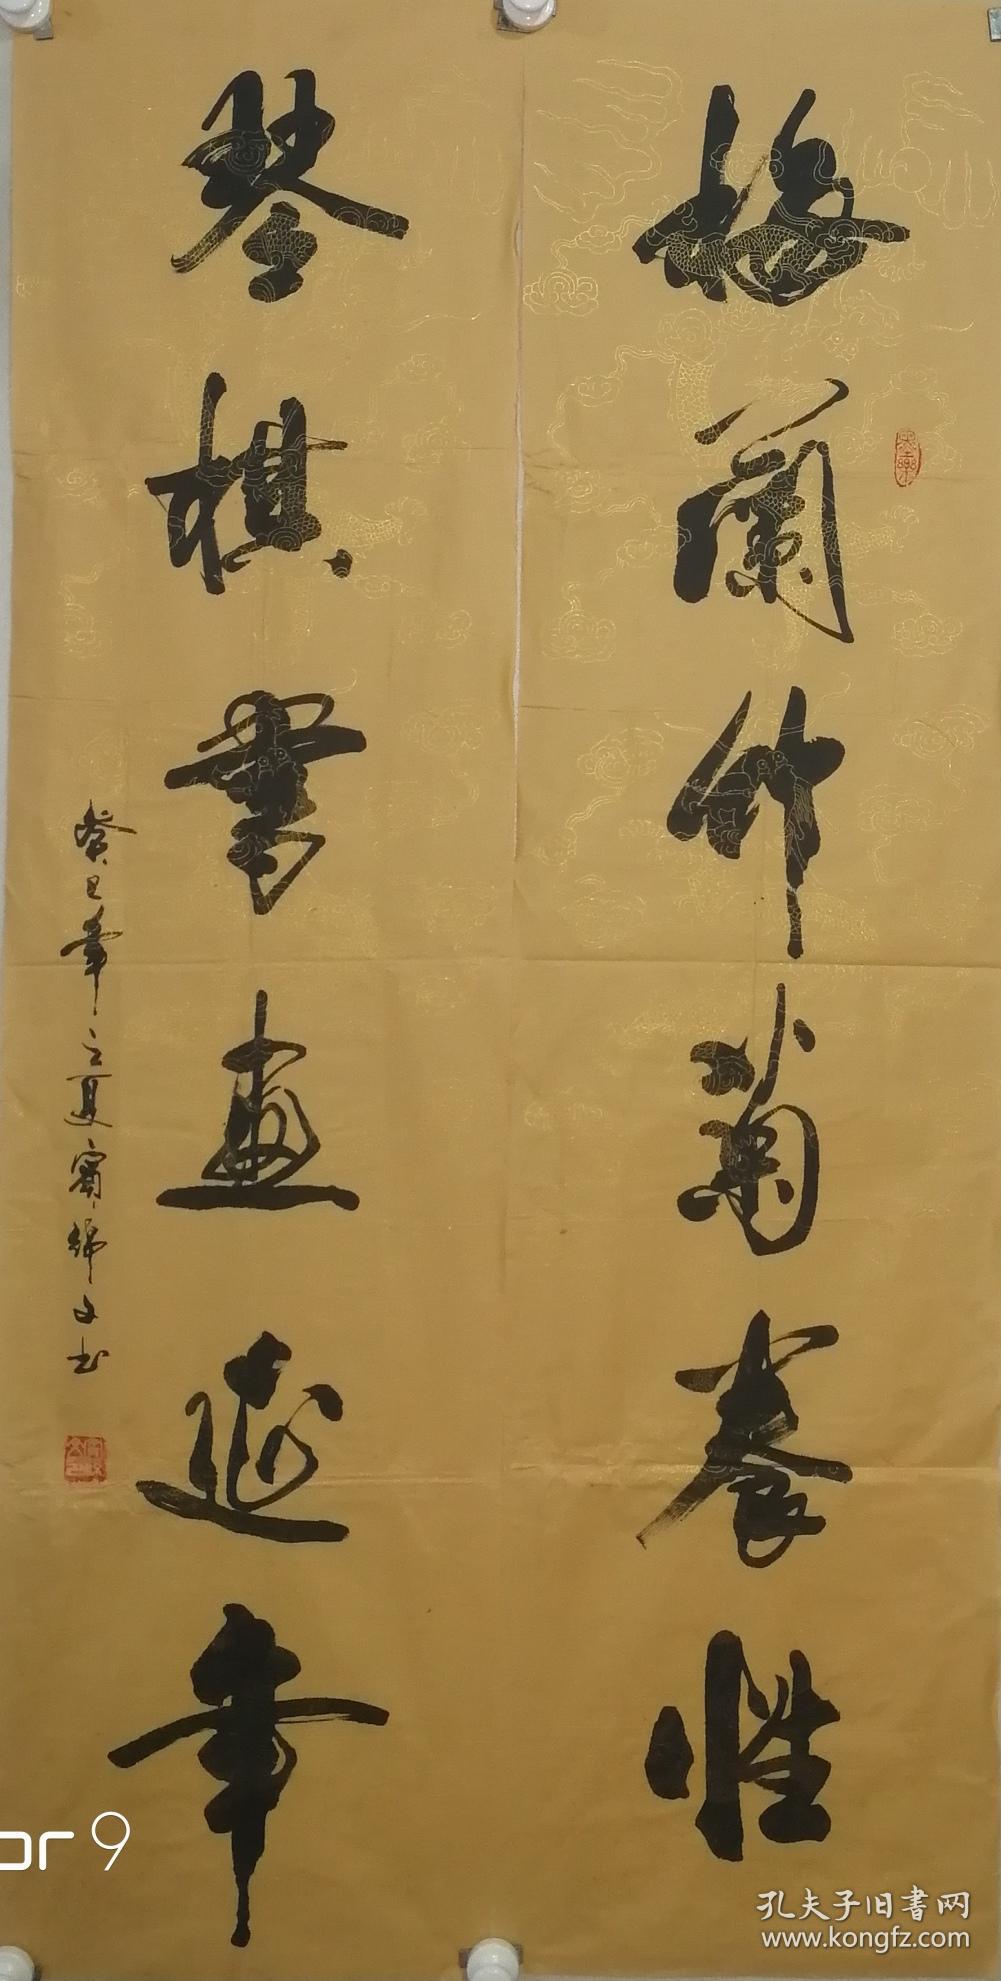 梅蘭竹菊養性
琴棋書畫延年
癸巳年立夏甯綿文书
or 9
孔夫子旧書网
www.kongfz.com